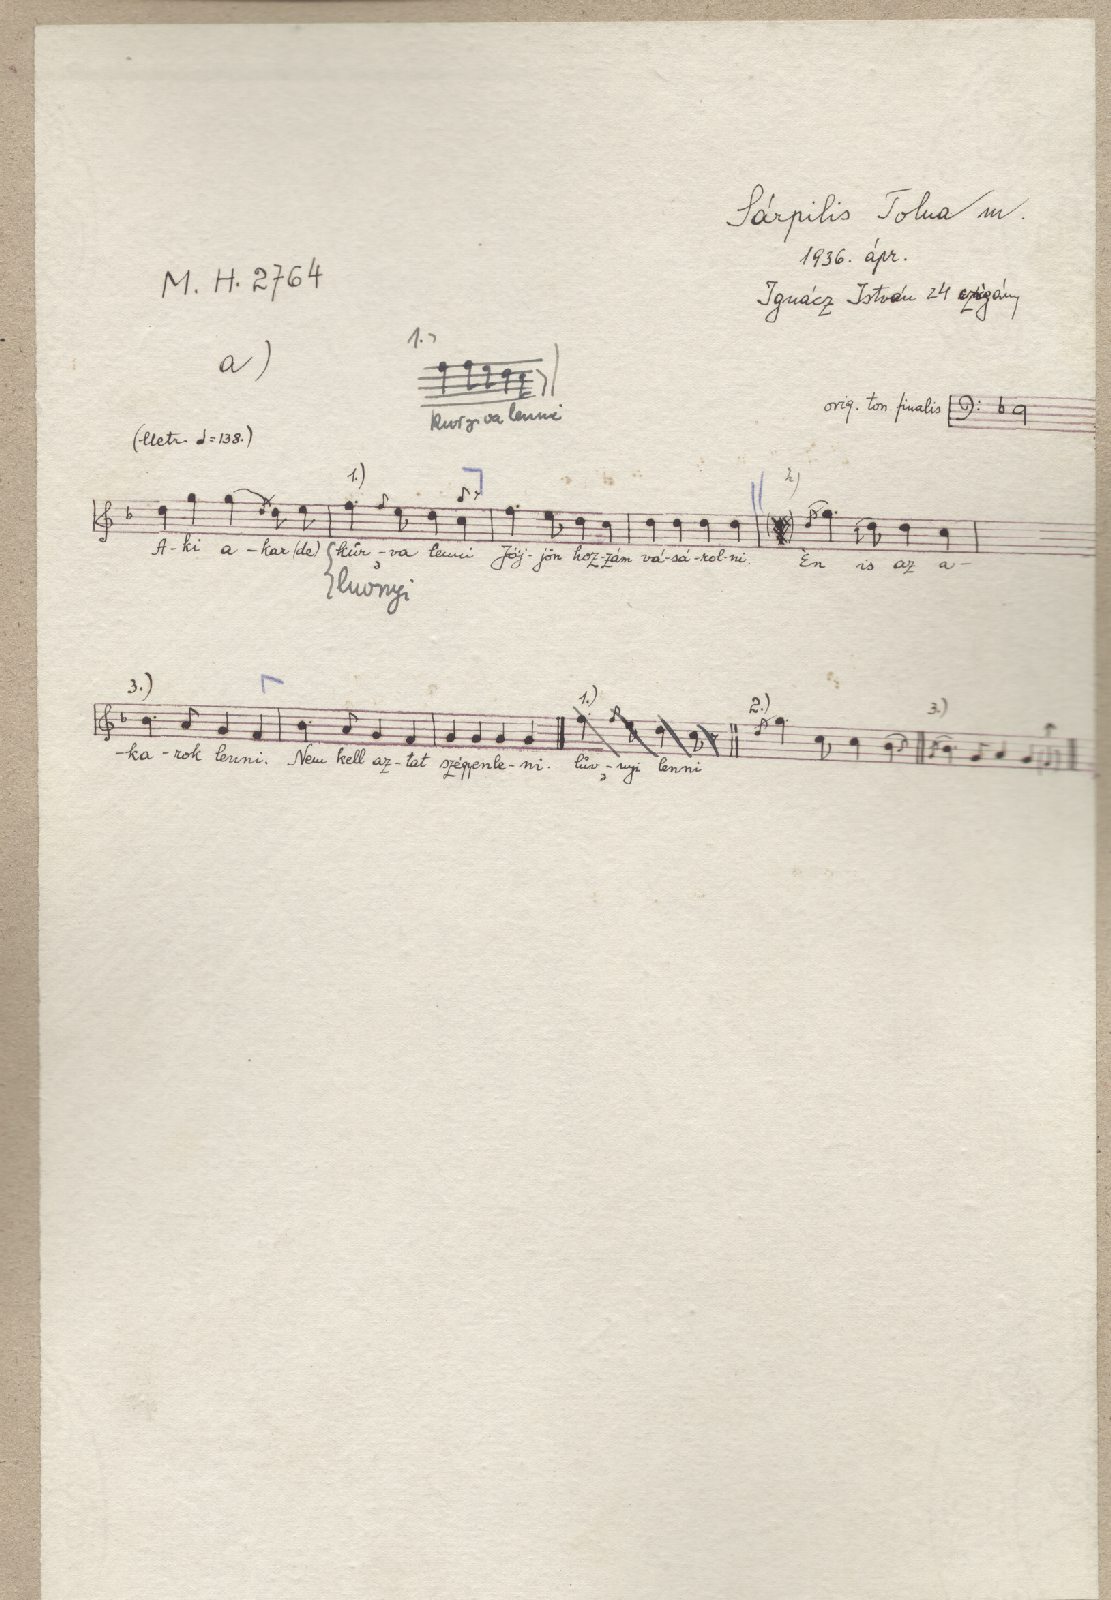 Sárpilis Tolna m.
1936. ápr.
M. H. 2764
Ignácz István 24 czigány
a)
1.)
lenni
orig. ton finalis
(Metr. ♩=138.)
1.) 2.)
A-ki a-kar (de) kúr-va lenni Jöj-jön hoz-zám vá-sá-rol-ni. Én is az a-
3.) 1.) 2.) 3.)
-ka-rok lenni. Nem kell az-tat szégyenle-ni. lenni